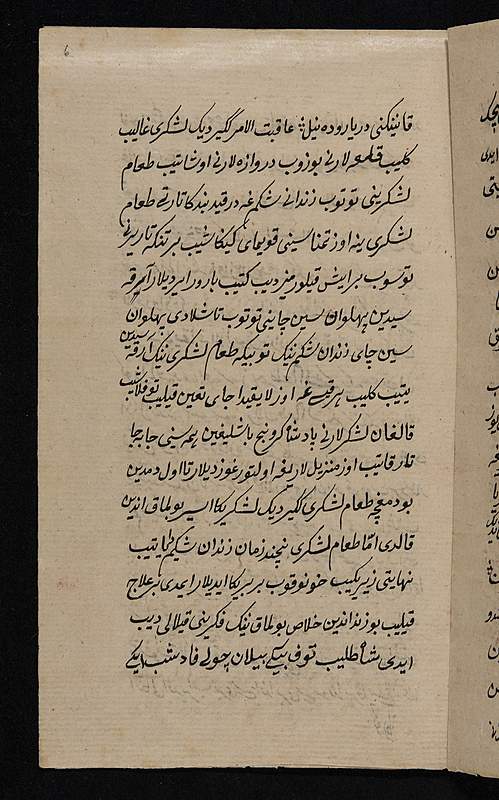 6
قانیفکنی دریا روده نیل عاقبت الامر کلیر دیک لشکری غالب
کلیب قلعه لارنی بوزوب دروازه لارنی اوشاتیب طعام
لشکرینی توتوب زندانی شکم غه در قید بند کا تارتی طعام
لشکری ینه اوز
توسوب بر ایش قیلورمیز دیب کتیب بارور ایردیلار آرقه
سیدین پهلوان سین چاینی توتوب تاشلادی پهلوان
سین چای زندان شکم نینک توبیکه طعام لشکری نینک آرقه سیدین
یتیب کلیب هر قیسی غه اوز لایقیدا جای تعین قیلیب
قالغان لشکرلارنی بادشاه کرونج باشلیغین همه سنی جابجا
تارقاتیب اوز منزیل لاریغه اولتورغوزدیلار تا اول دمدین
بو دمغچه طعام لشکری کلیر دیک لشکریکا اسیر بولماق اندین
قالدی اما طعام لشکری نیچند زمان زندان شکم دا یاتیب
نهایتی زیریکیب خونوقوب بربریکا ایدیلار ایمدی نه علاج
قیلیب بو زنداندین خلاص بولماق نینک فکرینی قیلالی دیب
ایدی شاه طلیب توف بیکی بیلان چولی فاد شب ایکی